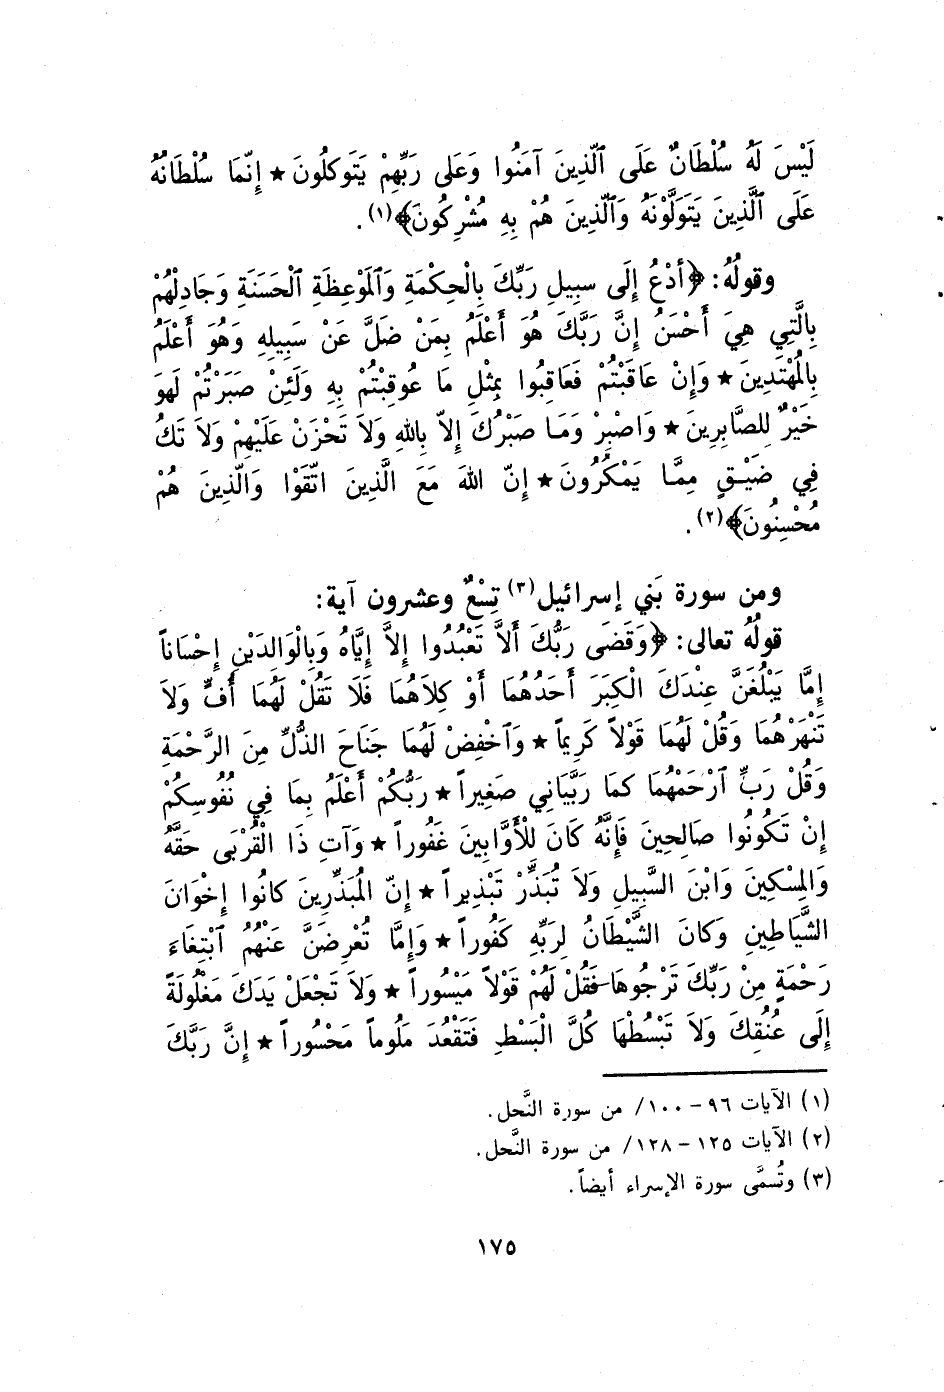 لَيْسَ لَهُ سُلْطَانٌ عَلَى ٱلَّذِينَ آمَنُوا وَعَلى رَبِّهِمْ يَتَوكلُونَ ★ إنّمَا سُلْطَانُهُ
عَلَى ٱلَّذِينَ يَتَوَلَّوْنَهُ وَٱلّذِينَ هُمْ بِهِ مُشْرِكُونَ﴾(١).
وقولُهُ: ﴿أدْعُ إلَى سبِيلِ رَبِّكَ بِالْحِكْمَةِ وَٱلمَوْعِظَةِ ٱلْحَسَنَةِ وَجَادِلْهُمْ
بِالَّتِي هِيَ أَحْسَنُ إنَّ رَبَّكَ هُوَ أَعْلَمُ بِمَنْ ضَلَّ عَنْ سَبِيلِهِ وَهُوَ أَعْلَمُ
بِالمُهْتَدِينَ ★ وَإنْ عَاقَبْتُمْ فَعَاقِبُوا بِمِثْلِ مَا عُوقِبْتُمْ بِهِ وَلَئِنْ صَبَرْتُمْ لَهوَ
خَيْرٌ لِلصَّابِرِينَ ★ وَاصْبِرْ وَمَـا صَبْرُكَ إلاّ بِاللهِ وَلاَ تَحْزَنْ عَلَيْهِمْ وَلاَ تَكُ
فِي ضَيْـقٍ مِمَّـا يَمْكُرُونَ ★ إنّ اللهَ مَعَ الَّذِينَ اتّقَوْا وَالّذِينَ هُمْ
مُحْسِنُونَ﴾(٢).
ومن سورة بَني إسرائيل(٣) تِسْعٌ وعشرون آية:
قولُهُ تعالى: ﴿وَقَضَى رَبُّكَ ألاَّ تَعْبُدُوا إلاَّ إيَّاهُ وَبِالْوَالدَيْنِ إحْسَاناً
إمَّا يَبْلُغَنَّ عِنْدَكَ الْكِبَرَ أَحَدُهُمَا أَوْ كِلاَهُمَا فَلَا تَقُلْ لَهُمَا أُفٍّ وَلاَ
تَنْهَرْهُمَا وَقُلْ لَهُمَا قَوْلاً كَرِيماً ★ وَآخْفِضْ لَهُمَا جَنَاحَ الذُّلِّ مِنَ الرَّحْمَةِ
وَقُلْ رَبِّ آرْحَمْهُمَا كمَا رَبَّيَانِي صَغِيراً ★ رَبُّكُمْ أَعْلَمُ بِمَا فِي نُفُوسِكُمْ
إنْ تَكُونُوا صَالِحِينَ فَإنَّهُ كَانَ لِلْأَوَّابِينَ غَفُوراً ★ وَآتِ ذَا الْقُرْبَى حَقَّهُ
وَالمِسْكِينَ وَابْنَ السَّبِيلِ وَلاَ تُبَذِّرْ تَبْذِيراً ★ إنّ المُبَذِّرِينَ كانُوا إخْوَانَ
الشَّيَاطِينِ وَكانَ الشَّيْطَانُ لِرَبِّهِ كَفُوراً ★ وَإمَّا تُعْرِضَنَّ عَنْهُمُ ٱبْتِغَاءَ
رَحْمَةٍ مِنْ رَبِّكَ تَرْجُوهَا فَقُلْ لَهُمْ قَوْلاً مَيْسُوراً ★ وَلاَ تَجْعَلْ يَدَكَ مَغْلُولَةً
إلَى عُنُقِكَ وَلاَ تَبْسُطْهَا كُلَّ الْبَسْطِ فَتَقْعُدَ مَلُوماً مَحْسُوراً ★ إنَّ رَبَّكَ
(١) الآيات ٩٦ - ١٠٠/ من سورة النَّحل.
(٢) الآيات ١٢٥ - ١٢٨/ من سورة النَّحل.
(٣) وتُسمَّى سورة الإسراء أيضاً.
١٧٥